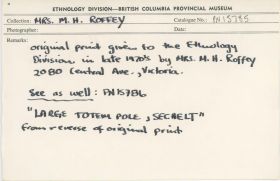 ETHNOLOGY DIVISION—BRITISH COLUMBIA PROVINCIAL MUSEUM
Collection: MRS. M. H. ROFFEY Catalogue No.: PN 15785
Photographer: Date:
Remarks:
original print given to the Ethnology
Division in late 1970's by MRS. M. H. Roffey
2080 Central Ave., Victoria.
See as well: PN15786
"LARGE TOTEM POLE, SECHELT"
from reverse of original print